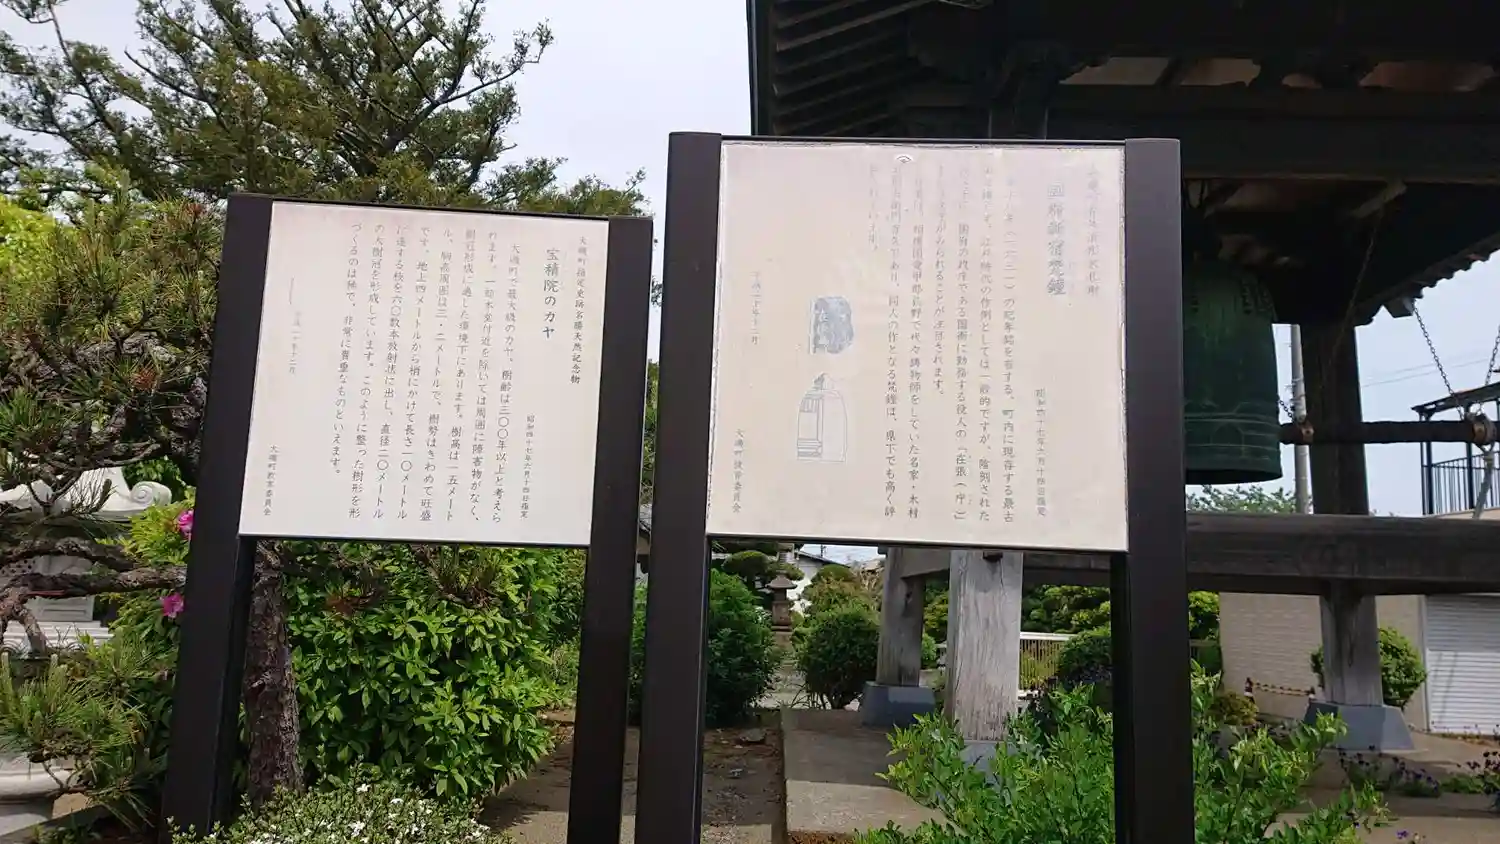 大磯町指定史跡名勝天然記念物
宝積院のカヤ
昭和四十七年六月十四日指定
大磯町で最大級のカヤ。樹齢は三〇〇年以上と考えら
れます。一部本堂付近を除いては周囲に障害物がなく、
樹冠形成に適した環境下にあります。樹高は一五メート
ル、胸高周囲は三・二メートルで、樹勢はきわめて旺盛
です。地上四メートルから梢にかけて長さ一〇メートル
に達する枝を六〇数本放射状に出し、直径二〇メートル
の大樹冠を形成しています。このように整った樹形を形
づくるのは稀で、非常に貴重なものといえます。
平成二十年十二月
大磯町教育委員会
国府新宿梵鐘
昭和四十七年六月十四日指定
(一六三一)の紀年銘を有する、町内に現存する最古
の梵鐘です。江戸時代の作例としては一般的ですが、陰刻された
国府の政庁である国衙に勤務する役人の「在張(庁)」
がみられることが注目されます。
相模国愛甲郡荻野で代々鋳物師をしていた名家・木村
であり、同人の作となる梵鐘は、県下でも高く評
平成二十年十二月
大磯町教育委員会